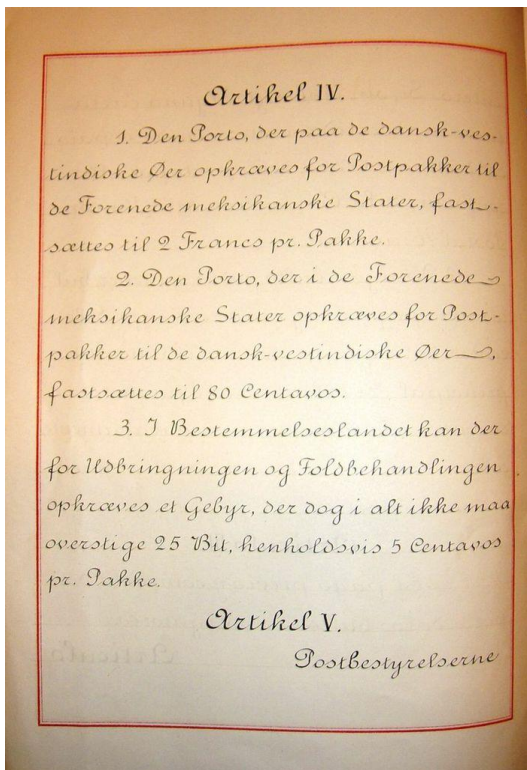 Artikel IV.
1. Den Porto, der paa de dansk-ves-
tindiske Øer opkræves for Postpakker til
de Forenede meksikanske Stater, fast-
sættes til 2 Francs pr. Pakke.
2. Den Porto, der i de Forenede
meksikanske Stater opkræves for Post-
pakker til de dansk-vestindiske Øer,
fastsættes til 80 Centavos.
3. I Bestemmelseslandet kan der
for Udbringningen og Toldbehandlingen
opkræves et Gebyr, der dog i alt ikke maa
overstige 25 Bit, henholdsvis 5 Centavos
pr. Pakke.
Artikel V.
Postbestyrelserne